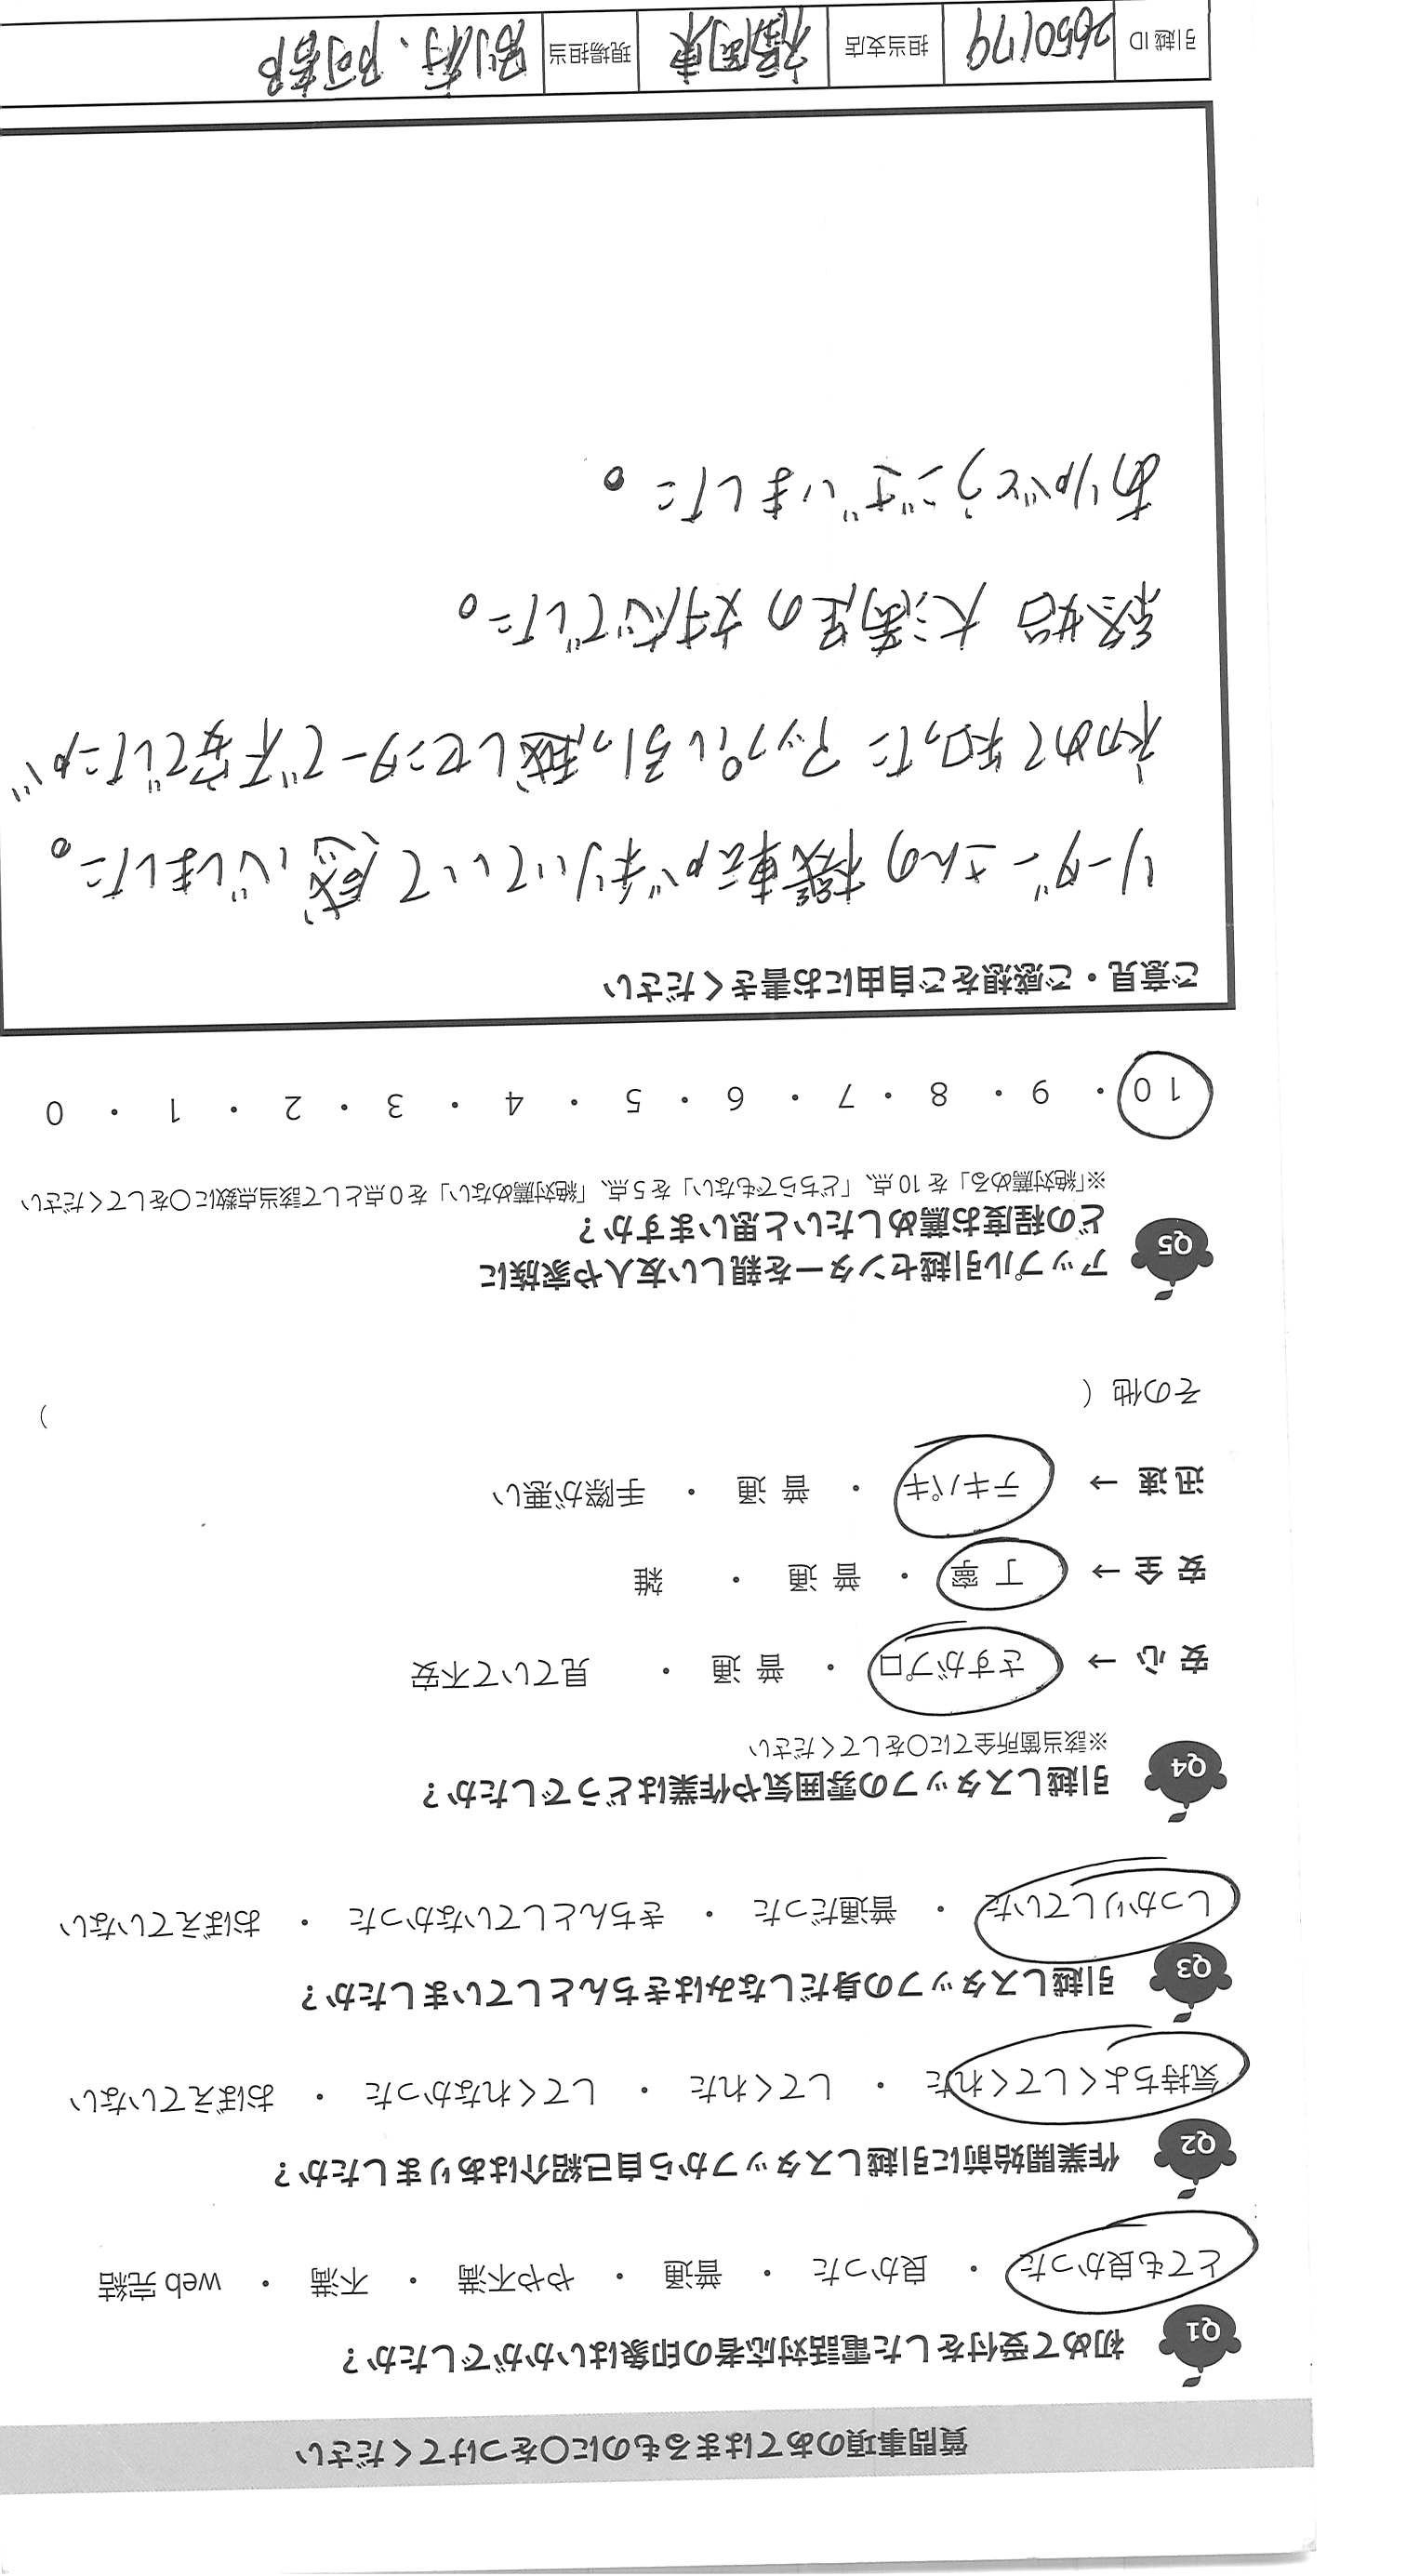 質問事項のあてはまるものに〇をつけてください
Q1 初めて受付をした電話対応者の印象はいかがでしたか？
とても良かった ・ 良かった ・ 普通 ・ やや不満 ・ 不満 ・ web 完結
Q2 作業開始前に引越しスタッフから自己紹介はありましたか？
気持ちよくしてくれた ・ してくれた ・ してくれなかった ・ おぼえていない
Q3 引越しスタッフの身だしなみはきちんとしていましたか？
しっかりしていた ・ 普通だった ・ きちんとしていなかった ・ おぼえていない
Q4 引越しスタッフの雰囲気や作業はどうでしたか？
※該当箇所全てに〇をしてください
安心 → さすがプロ ・ 普通 ・ 見ていて不安
安全 → 丁寧 ・ 普通 ・ 雑
迅速 → テキパキ ・ 普通 ・ 手際が悪い
その他 ( )
Q5 アップル引越センターを親しい友人や家族に
どの程度お薦めしたいと思いますか？
※「絶対薦める」を 10 点、「どちらでもない」を 5 点、「絶対薦めない」を 0 点として該当点数に〇をしてください
10 ・ 9 ・ 8 ・ 7 ・ 6 ・ 5 ・ 4 ・ 3 ・ 2 ・ 1 ・ 0
ご意見・ご感想をご自由にお書きください
リーダーさんの機転がきいていて感心しました。
初めて知ったアップル引っ越しセンターで不安でしたが
終始大満足の対応でした。
ありがとうございました。
引越 ID 2650179 担当支店 福岡東 現場担当